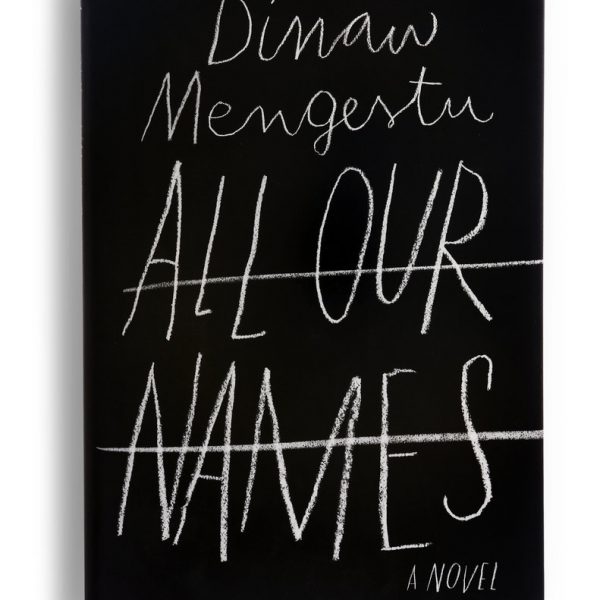 Dinaw
Mengestu
ALL OUR
NAMES
A NOVEL